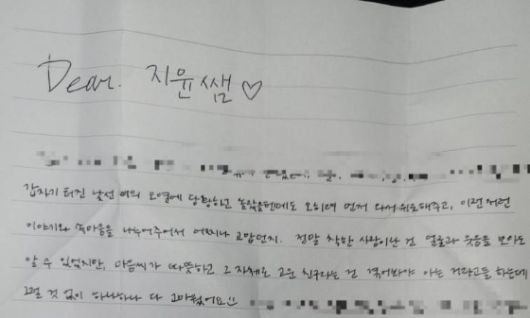 Dear. 지윤쌤♡
갑자기 터진 낯선 이의 오열에 당황하고 놀랐을텐데도 오히려 먼저 와서 위로해주고, 이런저런
이야기와 속마음을 나누어주어서 어찌나 고맙던지. 정말 착한 사람이란 건 얼굴과 웃음을 보아도
알 수 있었지만, 마음씨가 따뜻하고 그 자체로 고운 친구라는 건 겪어봐야 아는 거라고들 하는데
그럴 것 없이 하나하나 다 고마웠어요